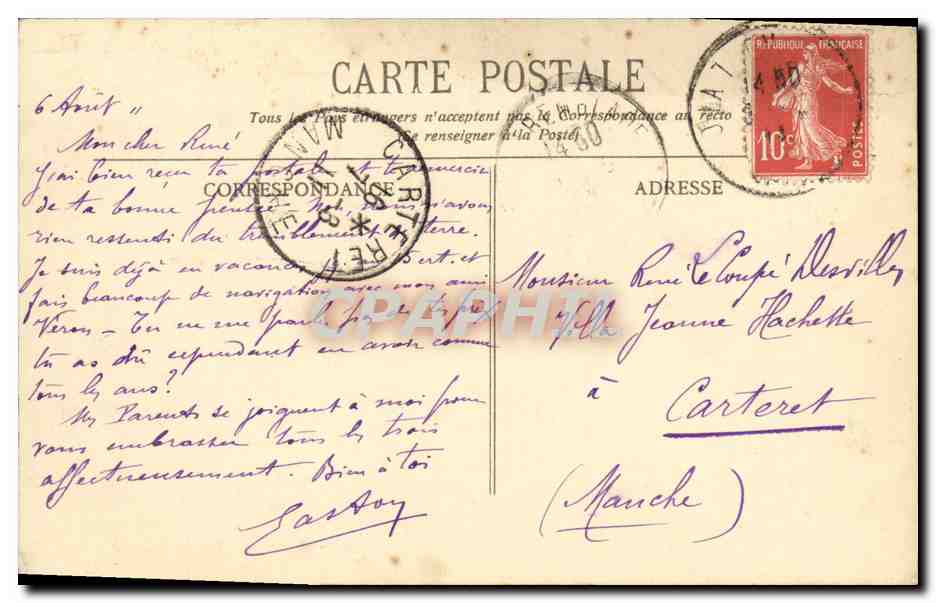 CARTE POSTALE
Tous les Pays étrangers n'acceptent pas la Correspondance au recto
Se renseigner à la Poste
CORRESPONDANCE
ADRESSE
REPUBLIQUE FRANÇAISE
10c
POSTES
CARTERET
MANCHE
14 50
6 Août
Mon cher René
J'ai bien reçu ta postale et te remercie
de ta bonne pensée. Nous n'avons
rien ressenti du tremblement de terre.
Je suis déjà en vacances et
fais beaucoup de navigation avec mon ami
Véron - Tu ne me parles pas de tes prix
tu as dû cependant en avoir comme
tous les ans?
Mes Parents se joignent à moi pour
vous embrasser tous les trois
affectueusement. Bien à toi
Gaston
Monsieur René Le Coupé Desvilles
Villa Jeanne Hachette
à
Carteret
(Manche)
CPARHIL